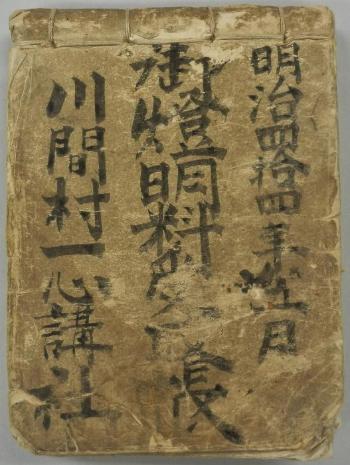 明治四拾四年 月
御燈明料 長
川間村一心講社